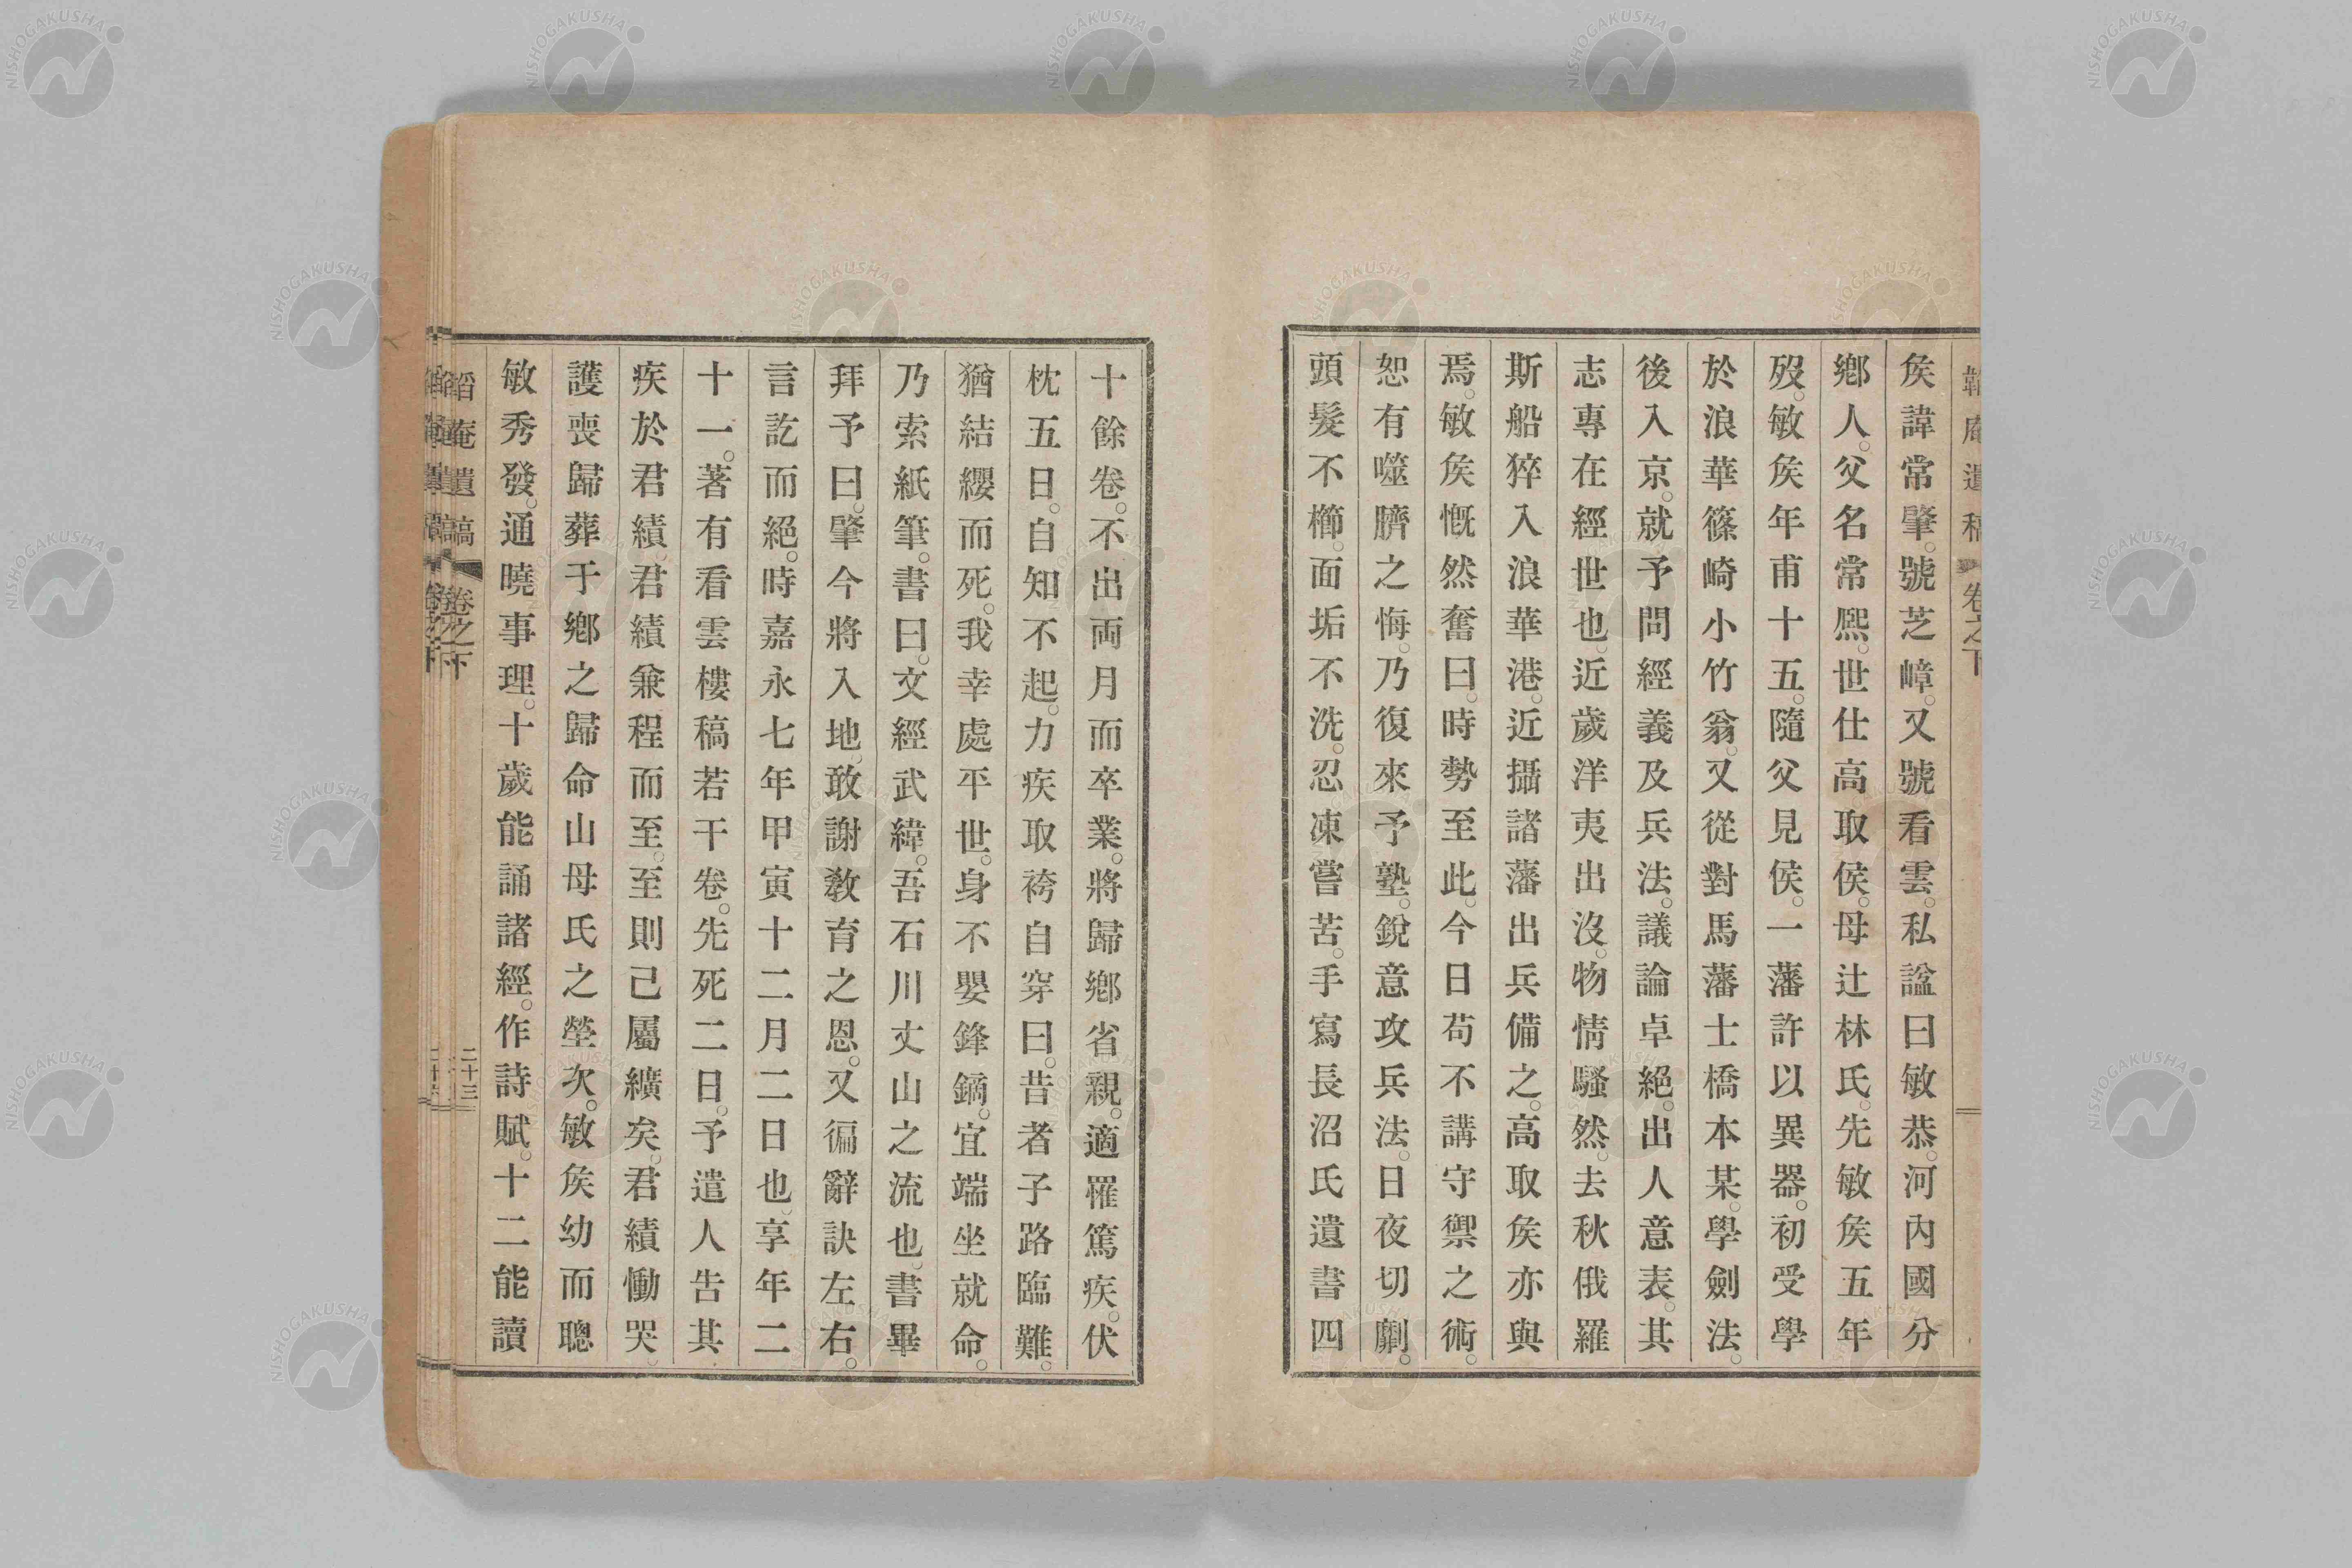 矦諱常肇。號芝嶂。又號看雲。私諡曰敏恭。河內國分
鄕人。父名常熈。世仕高取侯。母辻林氏。先敏矦五年
歿。敏矦年甫十五。隨父見侯。一藩許以異器。初受學
於浪華篠崎小竹翁。又從對馬藩士橋本某。學劍法。
後入京。就予問經義及兵法。議論卓絕。出人意表。其
志專在經世也。近歲洋夷出沒。物情騷然。去秋俄羅
斯船猝入浪華港。近攝諸藩出兵備之。高取矦亦與
焉。敏矦慨然奮曰。時勢至此。今日苟不講守禦之術。
恕有噬臍之悔。乃復來予塾。銳意攻兵法。日夜切劘。
頭髮不櫛。面垢不洗。忍凍嘗苦。手寫長沼氏遺書四
十餘卷。不出両月而卒業。將歸鄕省親。適罹篤疾。伏
枕五日。自知不起。力疾取袴自穿曰。昔者子路臨難。
猶結纓而死。我幸處平世。身不嬰鋒鏑。宜端坐就命。
乃索紙筆。書曰。文經武緯。吾石川丈山之流也。書畢
拜予曰。肇今將入地。敢謝敎育之恩。又徧辭訣左右。
言訖而絕。時嘉永七年甲寅十二月二日也。享年二
十一。著有看雲樓稿若干卷。先死二日。予遣人告其
疾於君績。君績兼程而至。至則已屬纊矣。君績慟哭
護喪歸葬于鄕之歸命山母氏之塋次。敏矦幼而聰
敏秀發。通曉事理。十歲能誦諸經。作詩賦。十二能讀
韜庵遺稿 卷之下 二十三
NISHOGAKUSHA